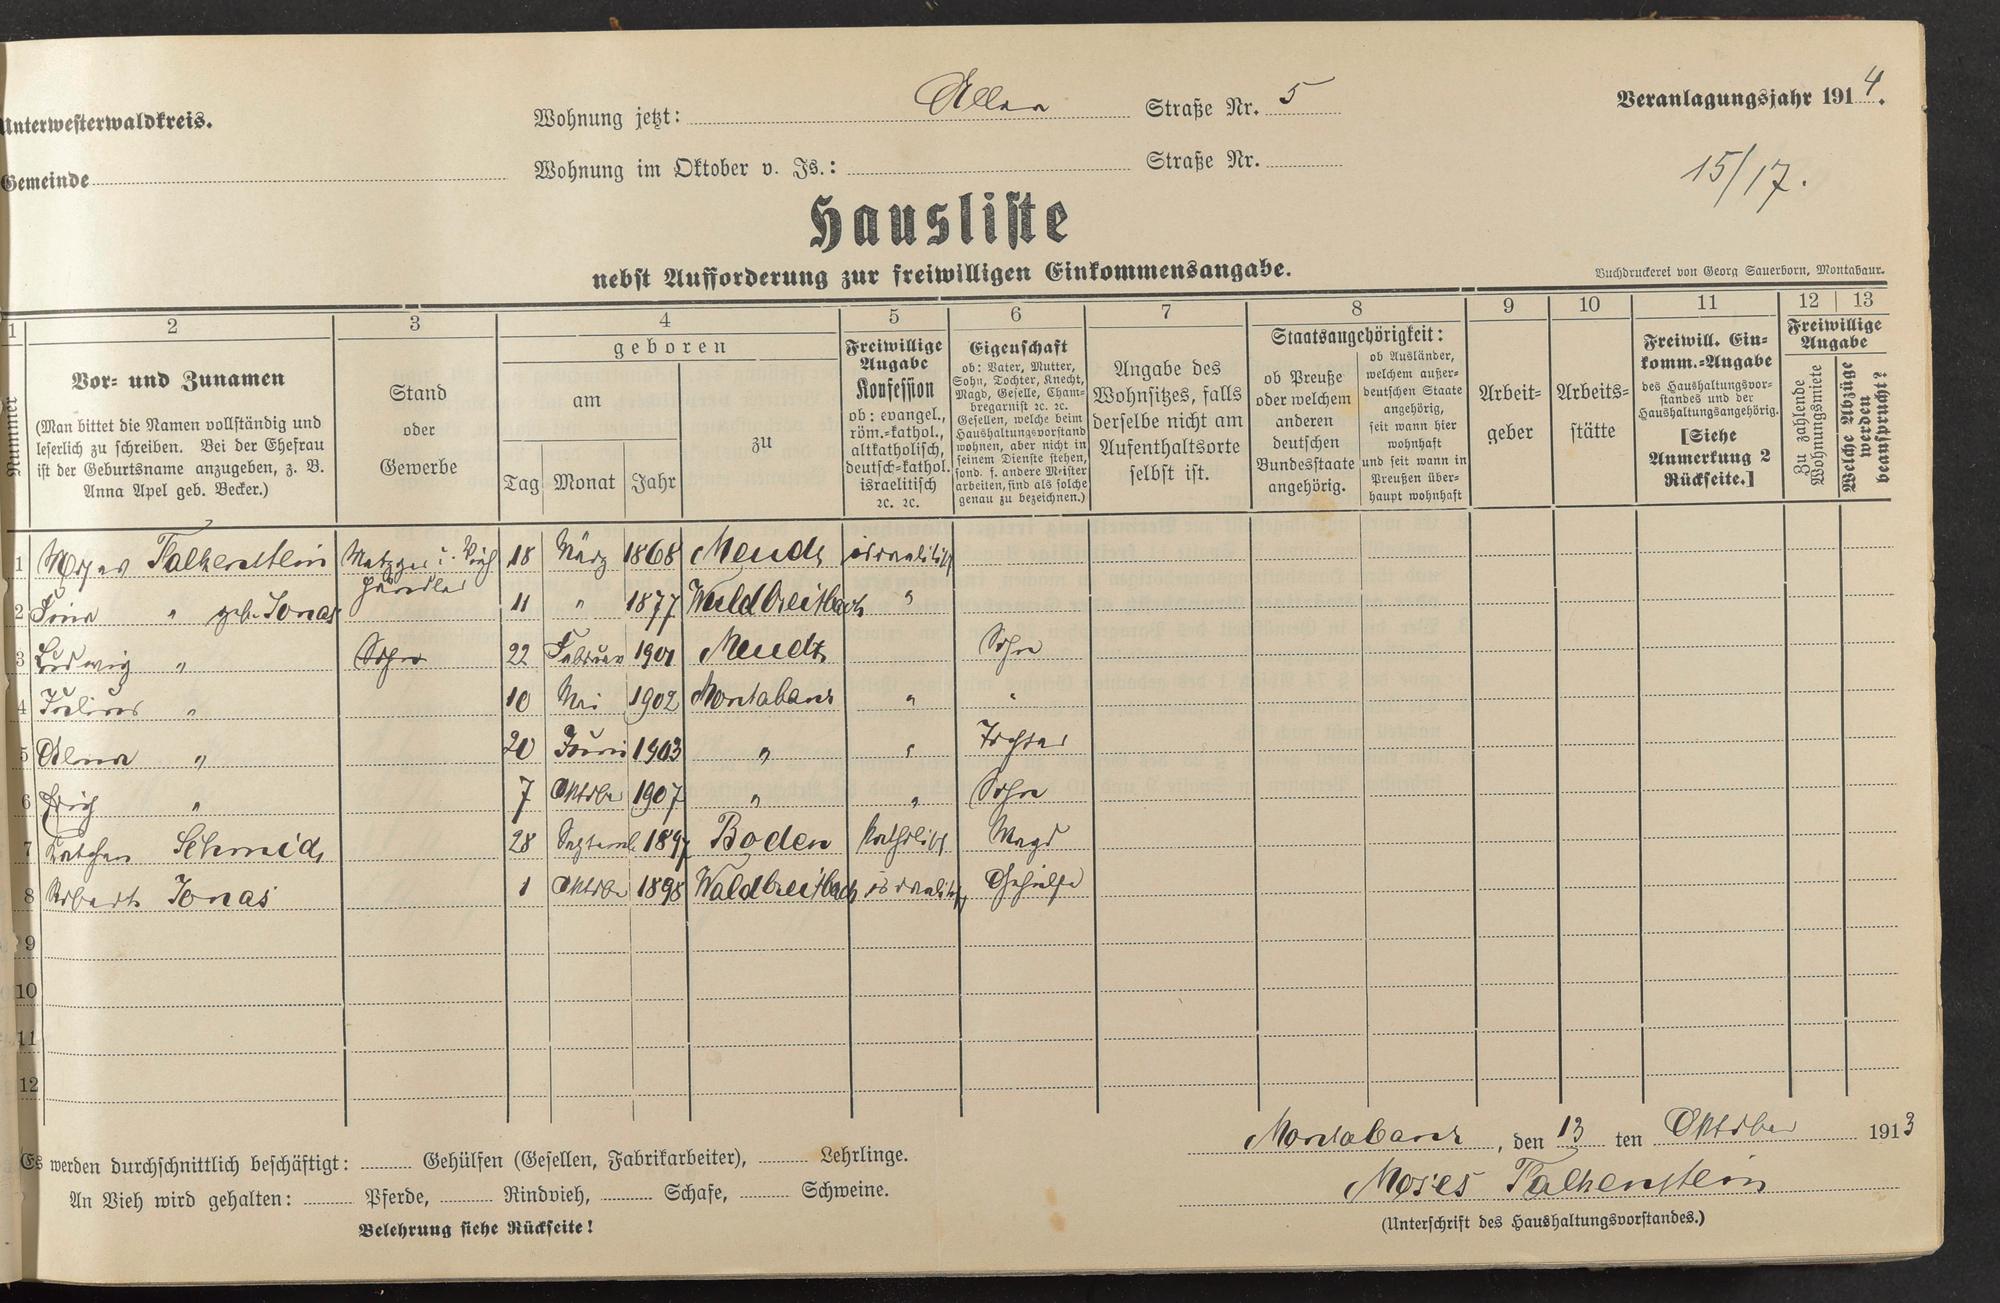 Unterwesterwaldkreis.
Wohnung jetzt: Allee Straße Nr. 5
Veranlagungsjahr 1914.
Gemeinde
Wohnung im Oktober v. Js.: Straße Nr.
15/17.
Hausliste
nebst Aufforderung zur freiwilligen Einkommensangabe.
Buchdruckerei von Georg Sauerborn, Montabaur.
1 2 3 4 5 6 7 8 9 10 11 12 13
Nummer
Vor- und Zunamen
(Man bittet die Namen vollständig und
leserlich zu schreiben. Bei der Ehefrau
ist der Geburtsname anzugeben, z. B.
Anna Apel geb. Becker.)
Stand
oder
Gewerbe
geboren
am
Tag Monat Jahr
zu
Freiwillige
Angabe
Konfession
ob: evangel.,
röm.-kathol.,
altkatholisch,
deutsch-kathol.
israelitisch
ꝛc. ꝛc.
Eigenschaft
ob: Vater, Mutter,
Sohn, Tochter, Knecht,
Magd, Geselle, Cham-
bregarnist ꝛc. ꝛc.
Gesellen, welche beim
Haushaltungsvorstand
wohnen, aber nicht in
seinem Dienste stehen,
sond. f. andere Meister
arbeiten, sind als solche
genau zu bezeichnen.)
Angabe des
Wohnsitzes, falls
derselbe nicht am
Aufenthaltsorte
selbst ist.
Staatsangehörigkeit:
ob Preuße
oder welchem
anderen
deutschen
Bundesstaate
angehörig.
ob Ausländer,
welchem außer-
deutschen Staate
angehörig,
seit wann hier
wohnhaft
und seit wann in
Preußen über-
haupt wohnhaft
Arbeit-
geber
Arbeits-
stätte
Freiwill. Ein-
komm.-Angabe
des Haushaltungsvor-
standes und der
Haushaltungsangehörig.
[Siehe
Anmerkung 2
Rückseite.]
Freiwillige
Angabe
Zu zahlende
Wohnungsmiete
Welche Abzüge
werden
beansprucht?
1 Moses Falkenstein Metzger u. Vieh 18 März 1868 Meudt israelitisch
händler
2 " geb. Jonas 11 " 1877 Waldbreitbach "
3 Ludwig " Sohn 22 Februar 1901 Meudt Sohn
4 Julius " 10 Mai 1902 Montabaur " "
5 Alma " 20 Juni 1903 " " Tochter
6 Erich " 7 Oktober 1907 " " Sohn
7 Katchen Schmidt 28 Septemb 1897 Boden katholisch Magd
8 Robert Jonas 1 Oktober 1898 Waldbreitbach israelitisch Gehülfe
9
10
11
12
Montabaur, den 13 ten Oktober 1913
Es werden durchschnittlich beschäftigt: Gehülfen (Gesellen, Fabrikarbeiter), Lehrlinge.
Moses Falkenstein
An Vieh wird gehalten: Pferde, Rindvieh, Schafe, Schweine.
(Unterschrift des Haushaltungsvorstandes.)
Belehrung siehe Rückseite!